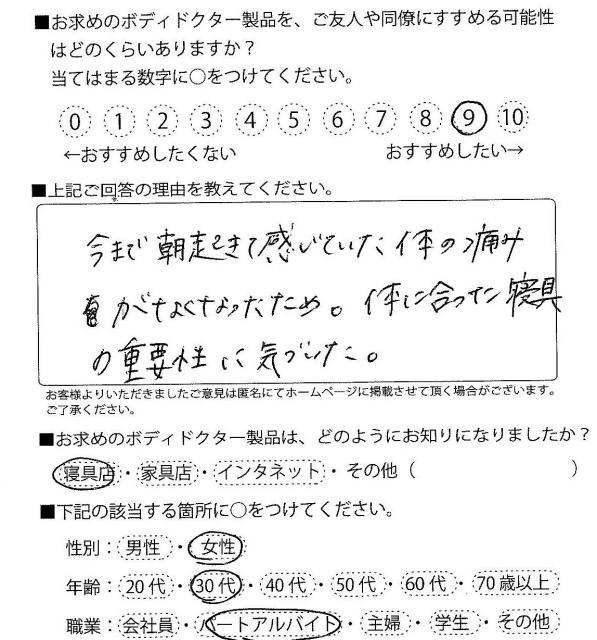 ■お求めのボディドクター製品を、ご友人や同僚にすすめる可能性
はどのくらいありますか？
当てはまる数字に○をつけてください。
0 1 2 3 4 5 6 7 8 9 10
←おすすめしたくない おすすめしたい→
■上記ご回答の理由を教えてください。
今まで朝起きて感じていた体の痛み
がなくなったため。体に合った寝具
の重要性に気づいた。
お客様よりいただきましたご意見は匿名にてホームページに掲載させて頂く場合がございます。
ご了承ください。
■お求めのボディドクター製品は、どのようにお知りになりましたか？
寝具店・家具店・インターネット・その他（ ）
■下記の該当する箇所に○をつけてください。
性別：男性・女性
年齢：20代・30代・40代・50代・60代・70歳以上
職業：会社員・パートアルバイト・主婦・学生・その他